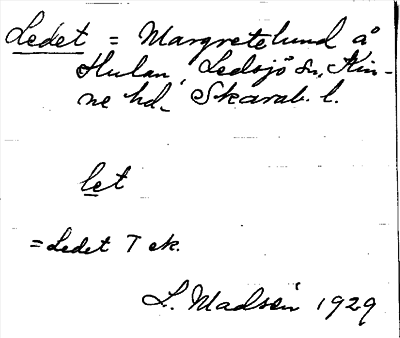 Ledet = Margretelund å
Hulan, Ledsjö sn, Kin-
ne hd. Skarab. l.
let
= Ledet T ek.
L. Madsén 1929